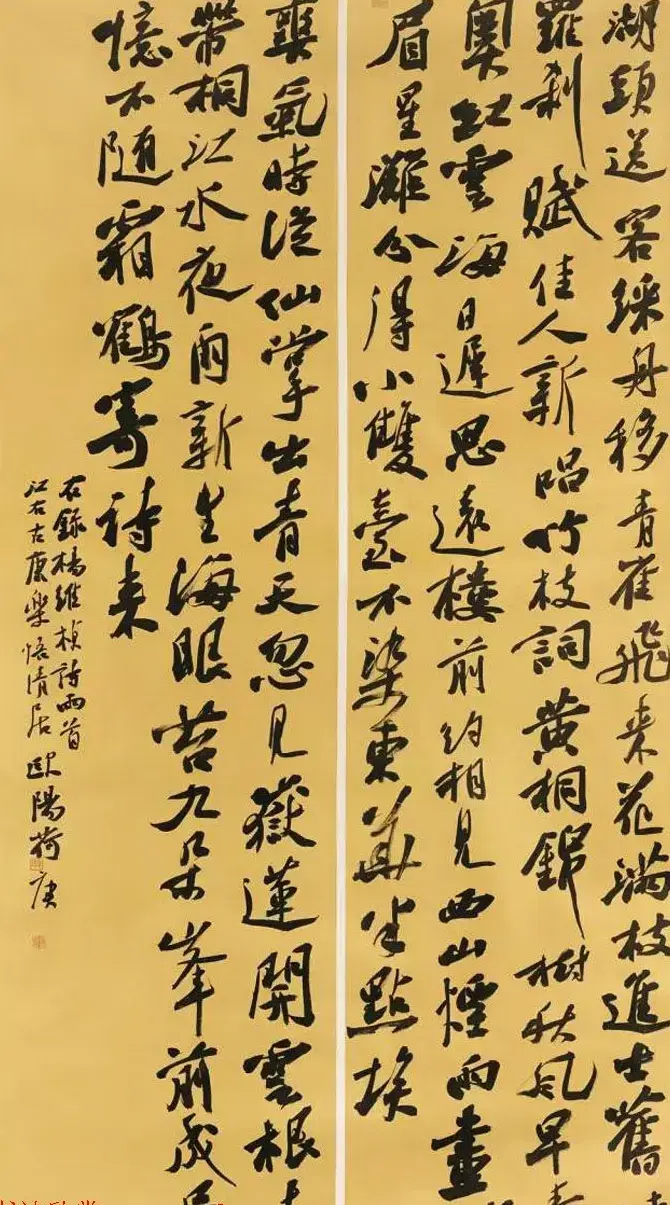 湖頭送客綵舟移青雀飛來花滿枝進士舊
羅刹賦佳人新唱竹枝詞黄桐錦樹秋風早
奧紅雲海日遲思遠樓前約相見西山煙雨畫
眉星灘分得小雙臺不染東華半點埃
爽氣時從仙掌出青天忽見嶽蓮開雲根
帶桐江水夜雨新生海眼苔九朵峯前成
憶不随霜鶴寄詩來
右錄楊維楨詩兩首
江右古庚樂悟清居歐陽荷庚